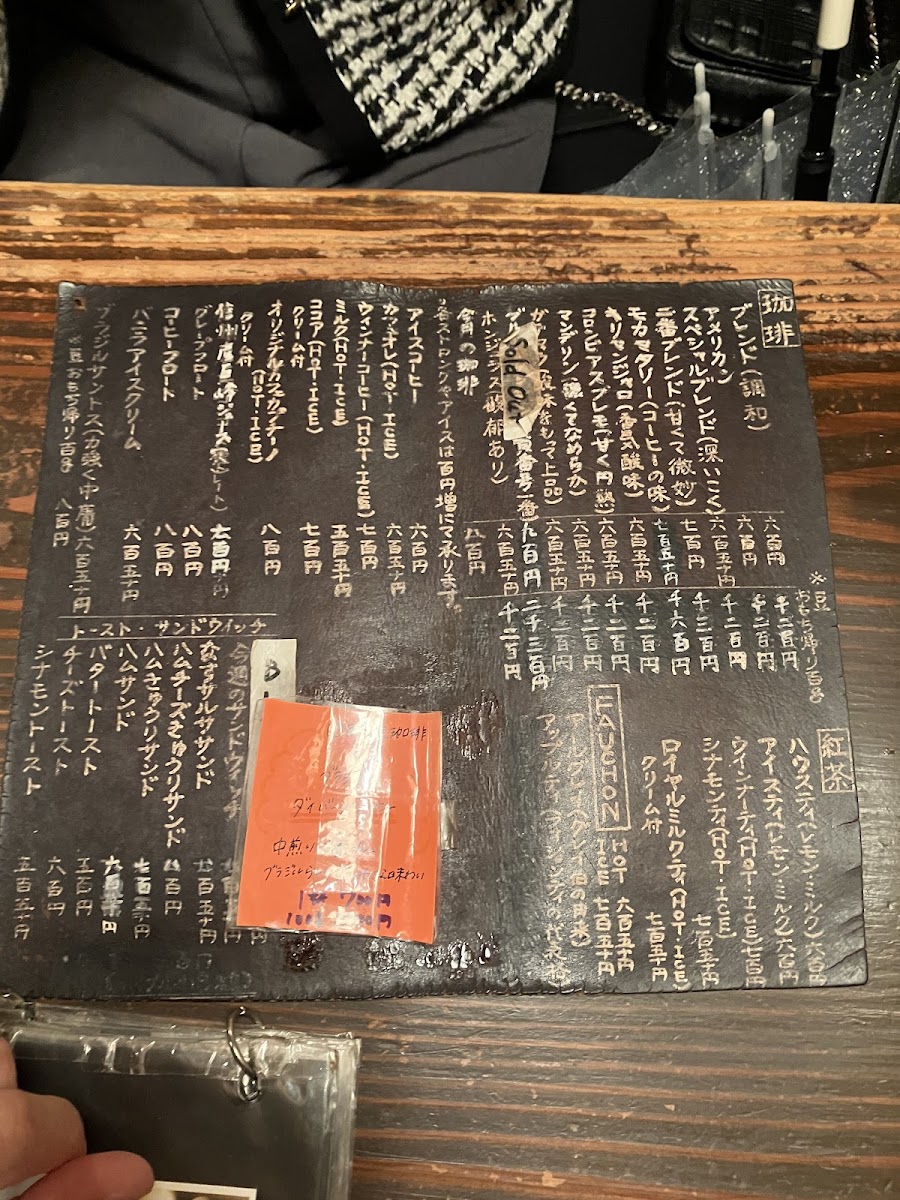 珈琲
ブレンド(調和)
アメリカン
スペシャルブレンド(深いこく)
二番ブレンド(甘くて微妙)
モカマタリー(コーヒーの味)
キリマンジャロ(香気酸味)
コロンビアスプレモ(甘く円熟)
マンデリン(濃くてなめらか)
をもつ上品)
Sold Out
番号一番)
ホンジュラス(馥郁あり)
今月の珈琲
ストロング、アイスは百円増にて承ります。
六百円
六百円
六百五十円
七百円
七百五十円
六百五十円
六百五十円
六百五十円
六百五十円
九百円
六百五十円
八百円
※豆おもち帰り百g
千二百円
千二百円
千二百円
千三百円
千六百円
千二百円
千二百円
千二百円
千二百円
二千二百円
千二百円
アイスコーヒー 六百円
カフェオレ(HOT・ICE) 六百五十円
ウィンナーコーヒー(HOT・ICE) 七百円
ミルク(HOT・ICE) 五百五十円
ココア(HOT・ICE) 七百円
クリーム付
オリジナルカフェカプチーノ
(HOT・ICE) 八百円
クリーム付
信州
ジュース
ストレート) 七百円
グレープフロート 八百円
コーヒーフロート 八百円
バニラアイスクリーム 六百五十円
ブラジルサントス(力強く中庸) 六百五十円
豆おもち帰り百g 八百円
紅茶
ハウスティ(レモン・ミルク) 六百円
アイスティ(レモン・ミルク) 六百円
ウインナーティ(HOT・ICE) 七百円
シナモンティ(HOT・ICE) 七百五十円
ロイヤルミルクティ(HOT・ICE)
クリーム付 七百五十円
FAUCHON
HOT 六百五十円
ICE 七百五十円
アップルティー
トースト・サンドウイッチ
今週のサンドウィッチ
なすサルササンド
ハムチーズきゅうりサンド
ハムきゅうりサンド
ハムサンド
バタートースト 五百円
チーズトースト 六百円
シナモントースト 五百五十円
B
珈琲
中煎り
ブラジル
味わい
700円